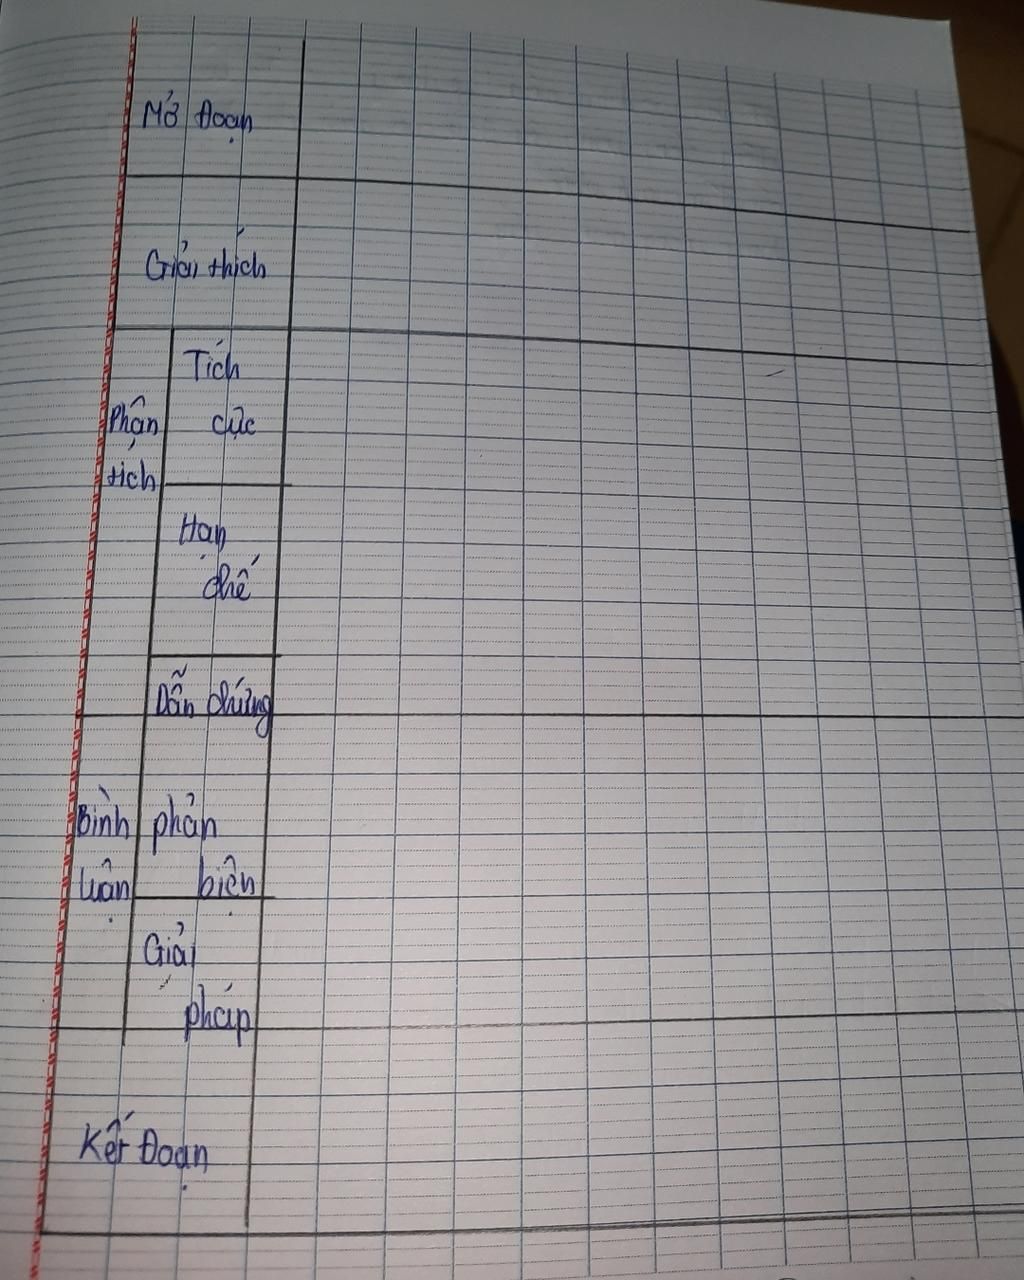 Mở Đoạn
Giải thích
Phân
tích
Tích
cực
Hạn
chế
Dẫn chứng
Bình
luận
phản
biện
Giải
pháp
Kết Đoạn